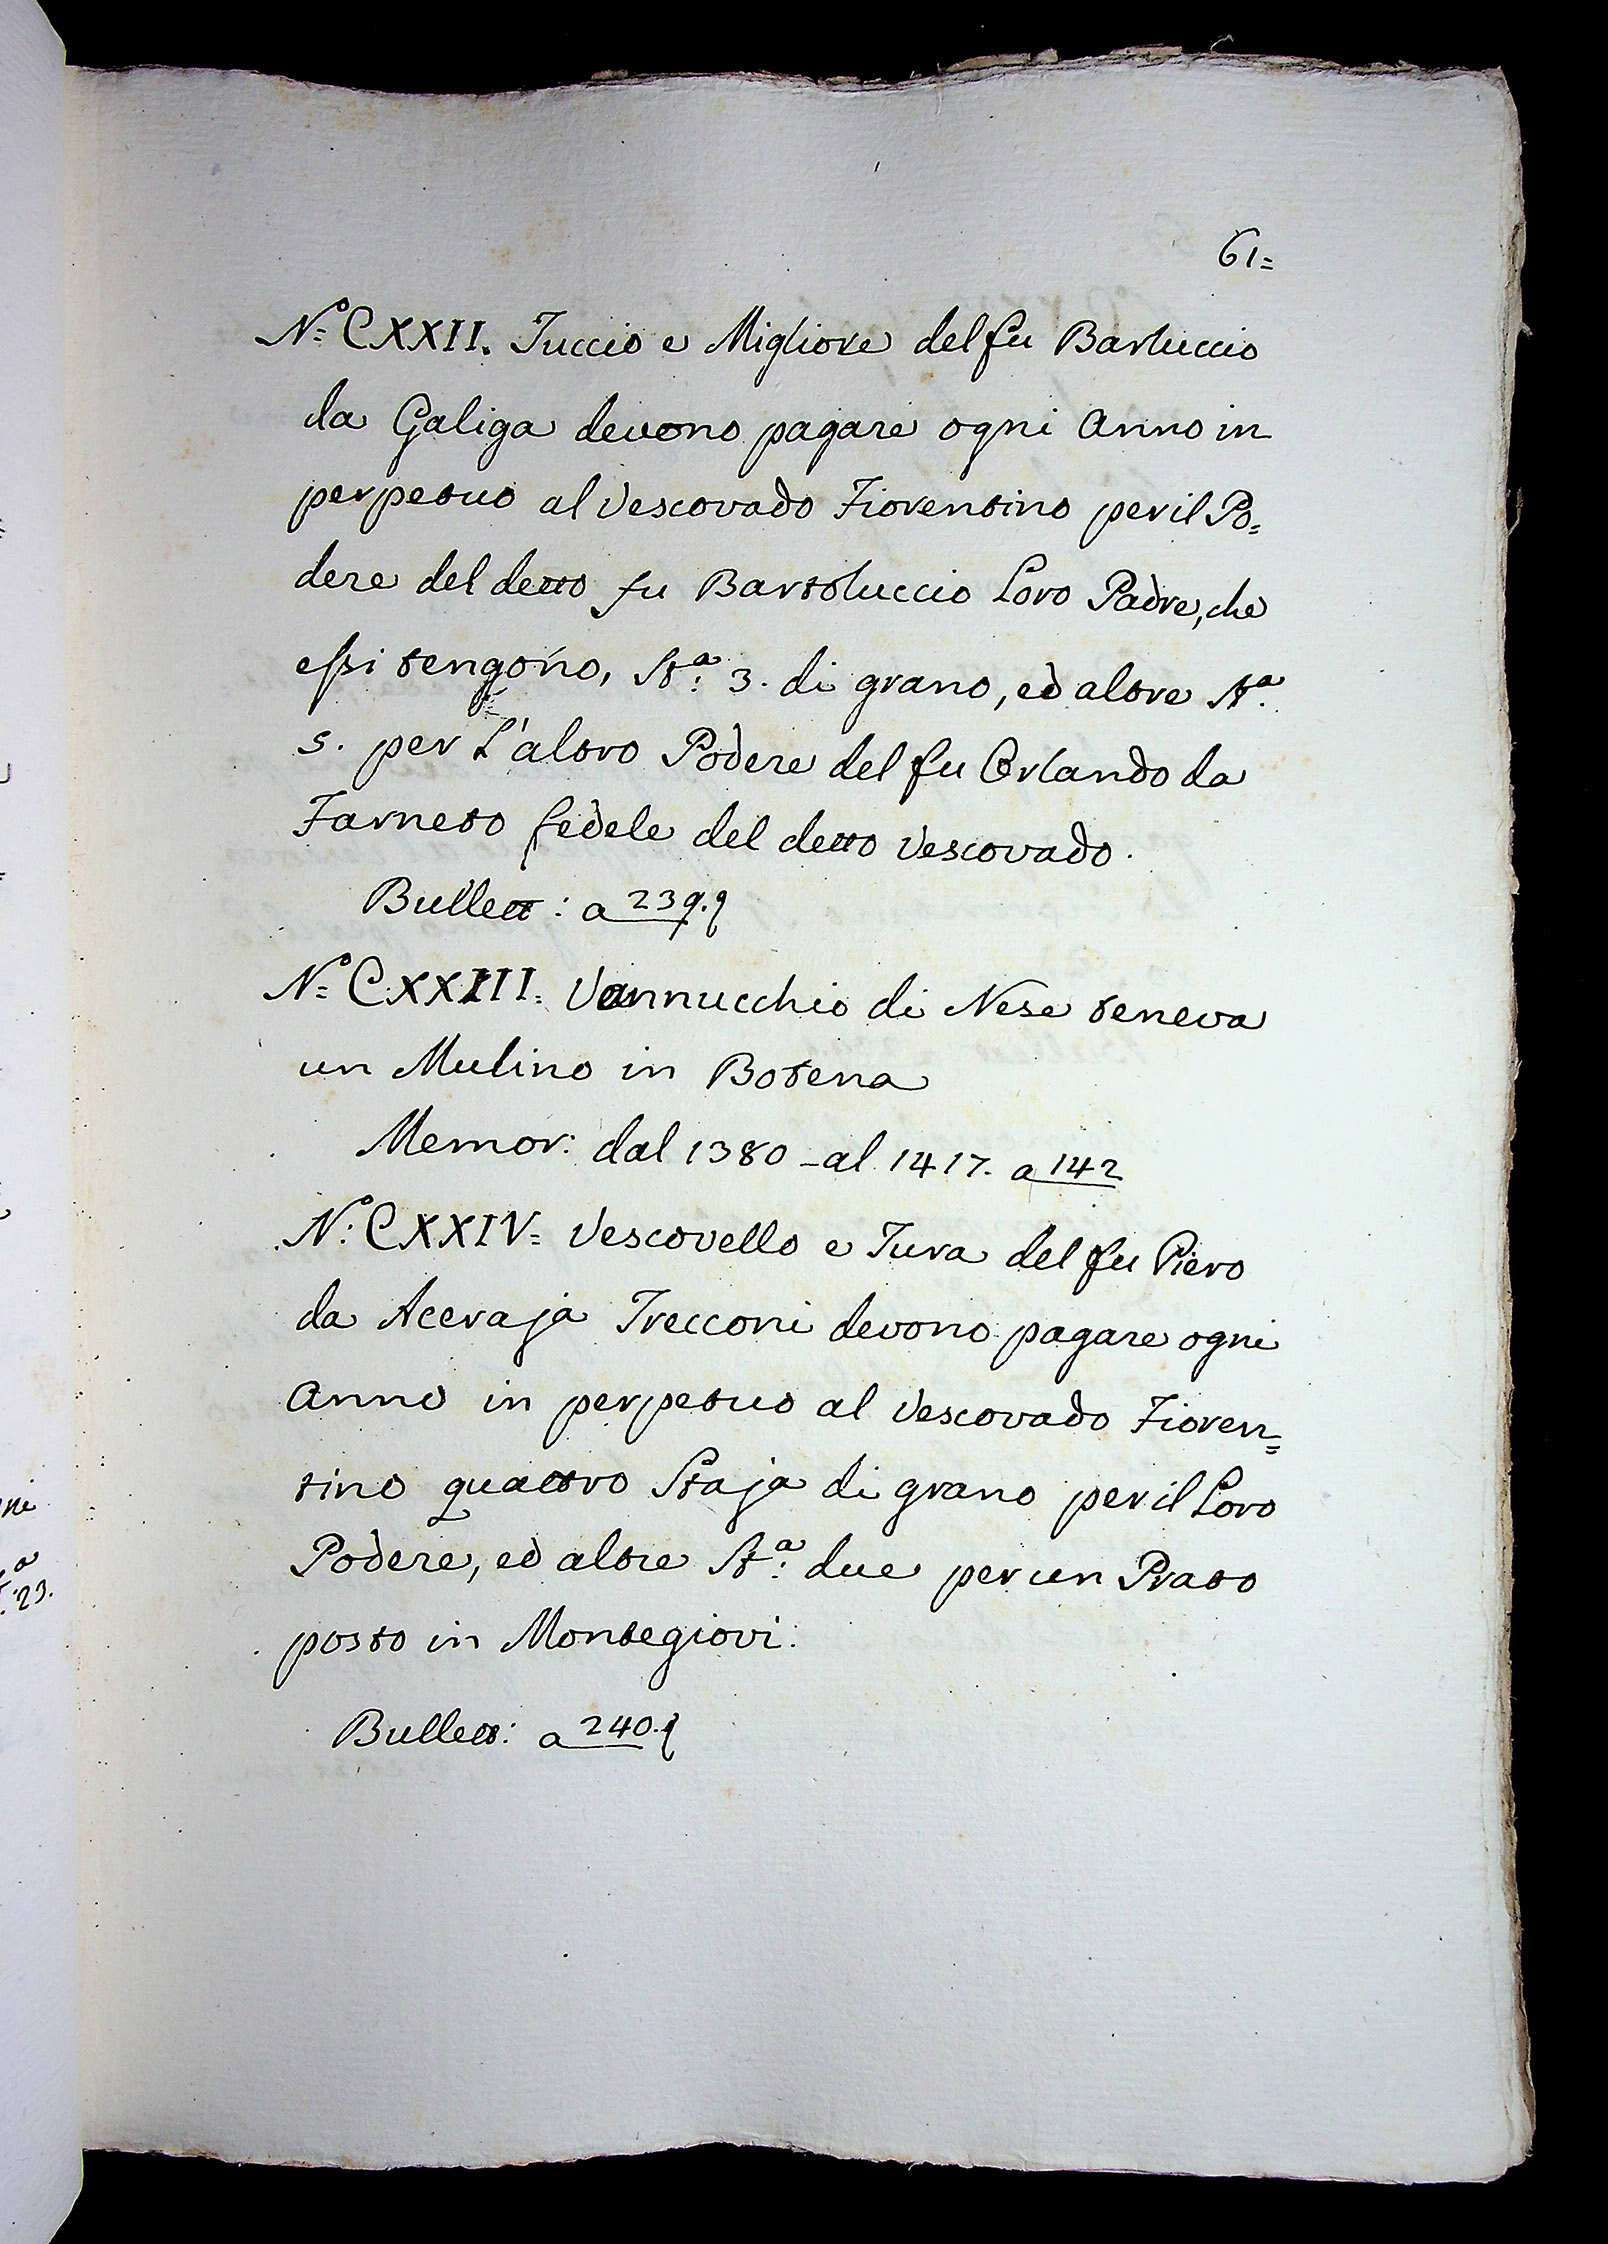 61=
N.o CXXII. Tuccio e Migliore del fu Bartuccio
da Galiga devono pagare ogni Anno in
perpetuo al Vescovado Fiorentino per il Po=
dere del detto fu Bartoluccio Loro Padre, che
essi tengono, St.a 3. di grano, ed altre St.a
5. per L'altro Podere del fu Orlando da
Farneto fedele del detto Vescovado.
Bullett: a 239.
N.o CXXIII. Vannucchio di Nese teneva
un Mulino in Botena
Memor: dal 1380 - al 1417. a 142
N.o CXXIV= Vescovello e Tura del fu Piero
da Aceraja Trecconi devono pagare ogni
Anno in perpetuo al Vescovado Fioren=
tino quattro Staja di grano per il Loro
Podere, ed altre St.a due per un Prato
posto in Montegiovi.
Bullett: a 240.